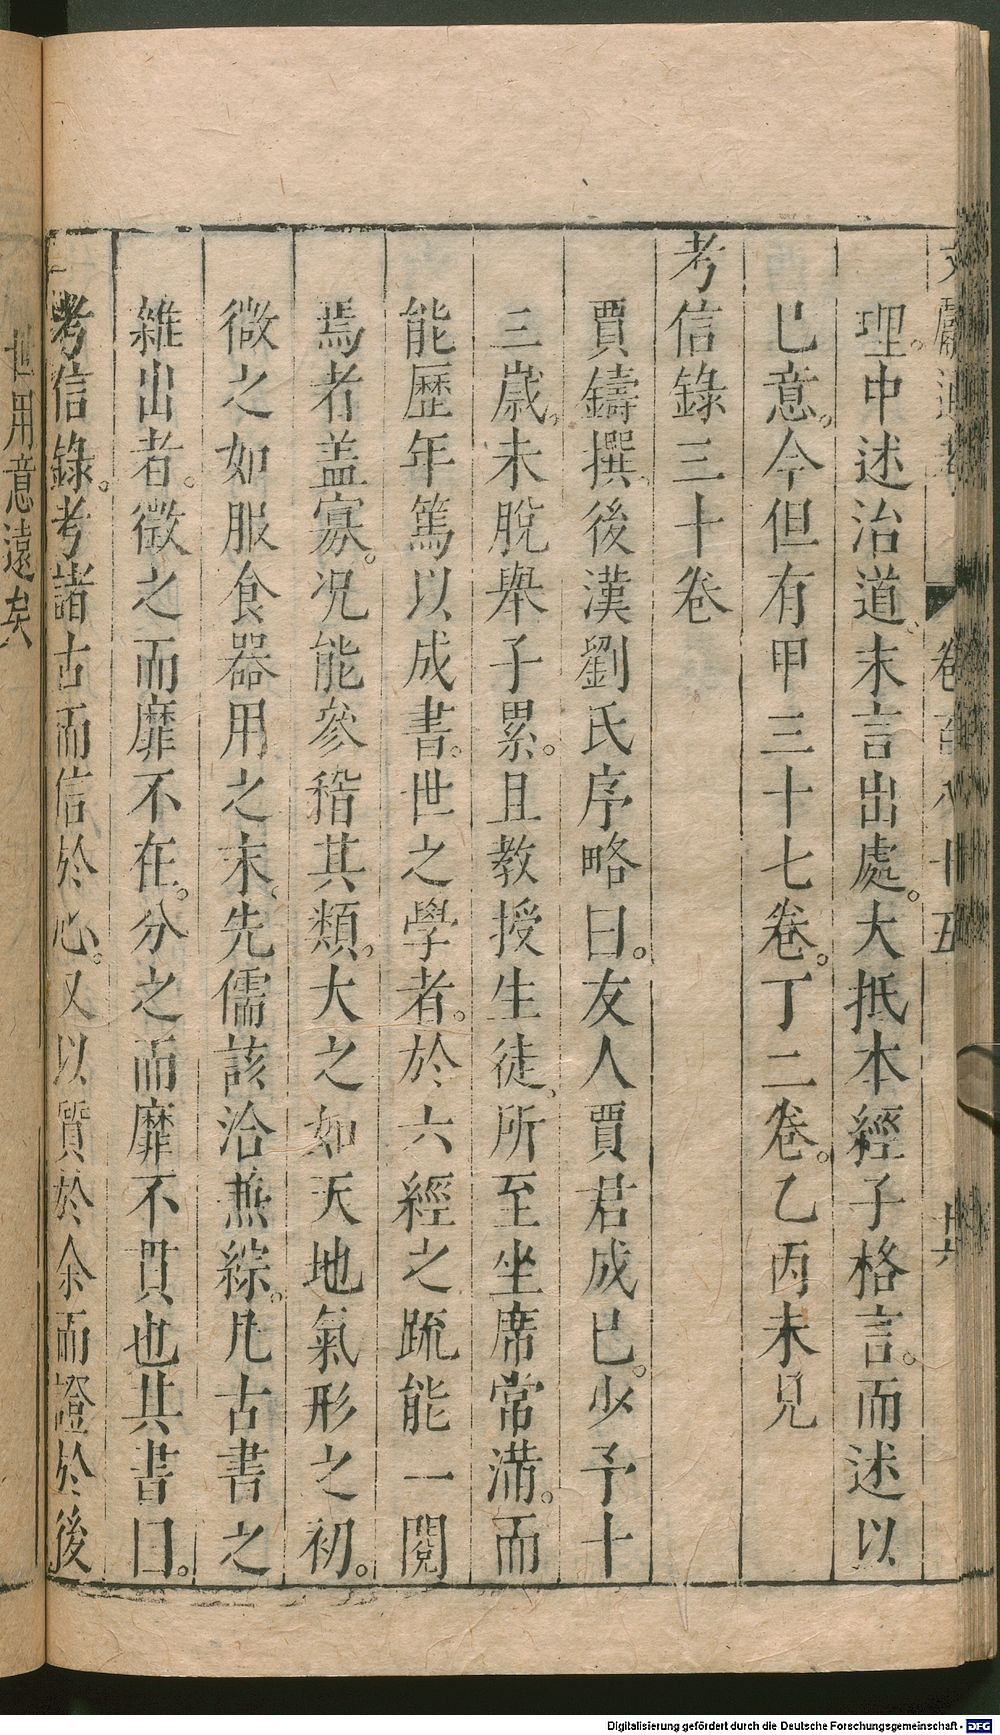 文獻通考 卷百八十五 十六
理。中述治道、末言出處。大抵本經子格言。而述以
已意。今但有甲三十七卷。丁二卷。乙丙未見
考信錄三十卷
賈鑄撰。後漢劉氏序略曰。友人賈君成已。少予十
三歲。未脫舉子累。且教授生徒、所至坐席常滿。而
能歷年篤以成書。世之學者。於六經之疏能一閱
焉者盖寡。况能參稽其類。大之如天地氣形之初。
微之如服食器用之末、先儒該洽燕綜。凡古書之
雜出者。徵之而靡不在。分之而靡不貫也其書曰。
考信錄。考諸古而信於心。又以質於余而證於後
世用意遠矣
Digitalisierung gefördert durch die Deutsche Forschungsgemeinschaft - DFG